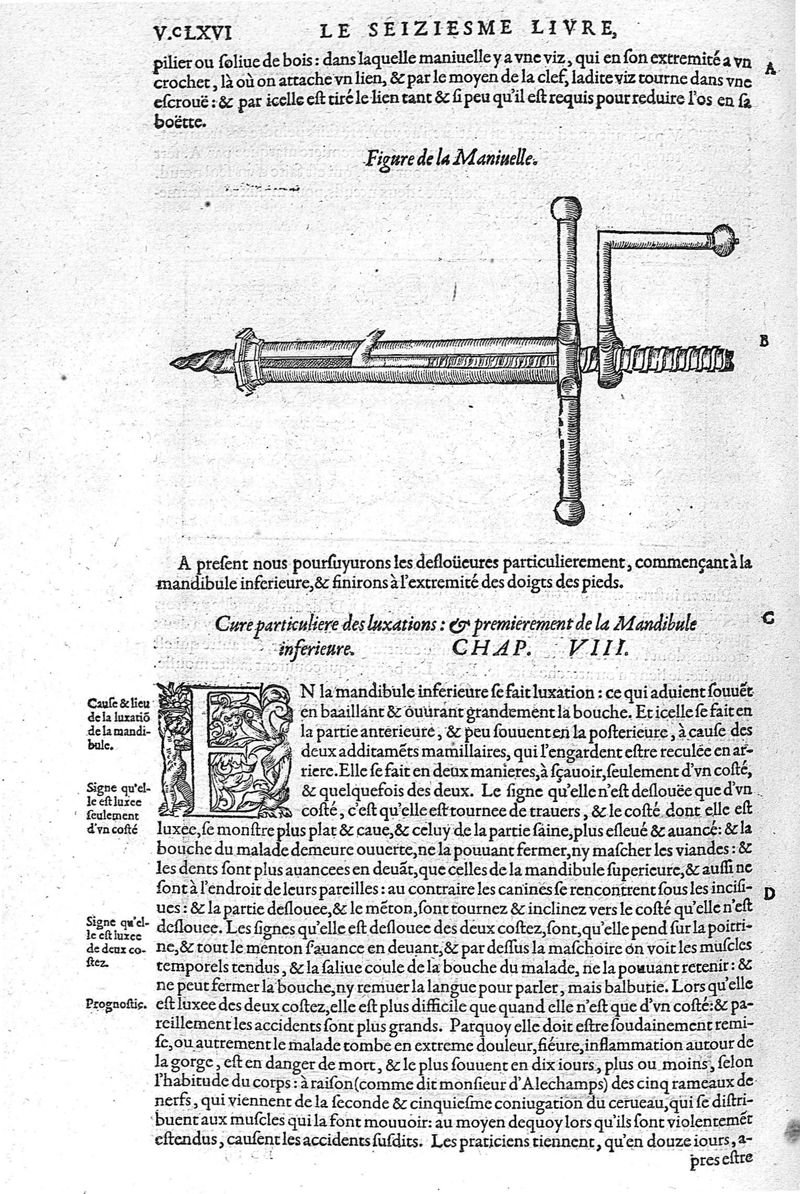 V.CLXVI LE SEIZIESME LIVRE,
pilier ou ſoliue de bois : dans laquelle maniuelle y a vne viz, qui en ſon extremité a vn
crochet, là où on attache vn lien, & par le moyen de la clef, ladite viz tourne dans vne
eſcrouë : & par icelle eſt tiré le lien tant & ſi peu qu'il eſt requis pour reduire l'os en ſa
boëtte.
A
Figure de la Maniuelle.
B
A preſent nous pourſuyurons les deſloüeures particulierement, commençant à la
mandibule inferieure, & finirons à l'extremité des doigts des pieds.
Cure particuliere des luxations : & premierement de la Mandibule
inferieure. CHAP. VIII.
C
Cauſe & lieu
de la luxatiõ
de la mandi-
bule.
Signe qu'el-
le eſt luxee
ſeulement
d'vn coſté
EN la mandibule inferieure ſe fait luxation : ce qui aduient ſouuẽt
en baaillant & ouurant grandement la bouche. Et icelle ſe fait en
la partie anterieure, & peu ſouuent en la poſterieure, à cauſe des
deux additamẽts mamillaires, qui l'engardent eſtre reculée en ar-
riere. Elle ſe fait en deux manieres, à ſçauoir, ſeulement d'vn coſté,
& quelquefois des deux. Le ſigne qu'elle n'eſt deſlouëe que d'vn
coſté, c'eſt qu'elle eſt tournee de trauers, & le coſté dont elle eſt
luxée, ſe monſtre plus plat & caue, & celuy de la partie ſaine, plus eſleué & auancé : & la
bouche du malade demeure ouuerte, ne la pouuant fermer, ny maſcher les viandes : &
les dents ſont plus auancees en deuãt, que celles de la mandibule ſuperieure, & auſſi ne
ſont à l'endroit de leurs pareilles : au contraire les canines ſe rencontrent ſous les inciſi-
ues : & la partie deſlouee, & le mẽton, ſont tournez & inclinez vers le coſté qu'elle n'eſt
D
Signe qu'el-
le eſt luxee
de deux co-
ſtez.
Prognoſtic.
deſlouee. Les ſignes qu'elle eſt deſlouee des deux coſtez, ſont, qu'elle pend ſur la poitri-
ne, & tout le menton s'auance en deuant, & par deſſus la maſchoire on voit les muſcles
temporels tendus, & la ſaliue coule de la bouche du malade, ne la pouuant retenir : &
ne peut fermer la bouche, ny remuer la langue pour parler, mais balbutie. Lors qu'elle
eſt luxee des deux coſtez, elle eſt plus difficile que quand elle n'eſt que d'vn coſté : & pa-
reillement les accidents ſont plus grands. Parquoy elle doit eſtre ſoudainement remi-
ſe, ou autrement le malade tombe en extreme douleur, fiéure, inflammation autour de
la gorge, eſt en danger de mort, & le plus ſouuent en dix iours, plus ou moins, ſelon
l'habitude du corps : à raiſon (comme dit monſieur d'Alechamps) des cinq rameaux de
nerfs, qui viennent de la ſeconde & cinquieſme coniugation du cerueau, qui ſe diſtri-
buent aux muſcles qui la font mouuoir : au moyen dequoy lors qu'ils ſont violentemẽt
eſtendus, cauſent les accidents ſuſdits. Les praticiens tiennent, qu'en douze iours, a-
pres eſtre